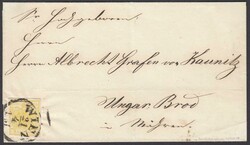 Sr Hochgeboren
Herrn
Herrn Albrecht Grafen von Kaunitz
Ungar. Brod
in Mähren
WIEN